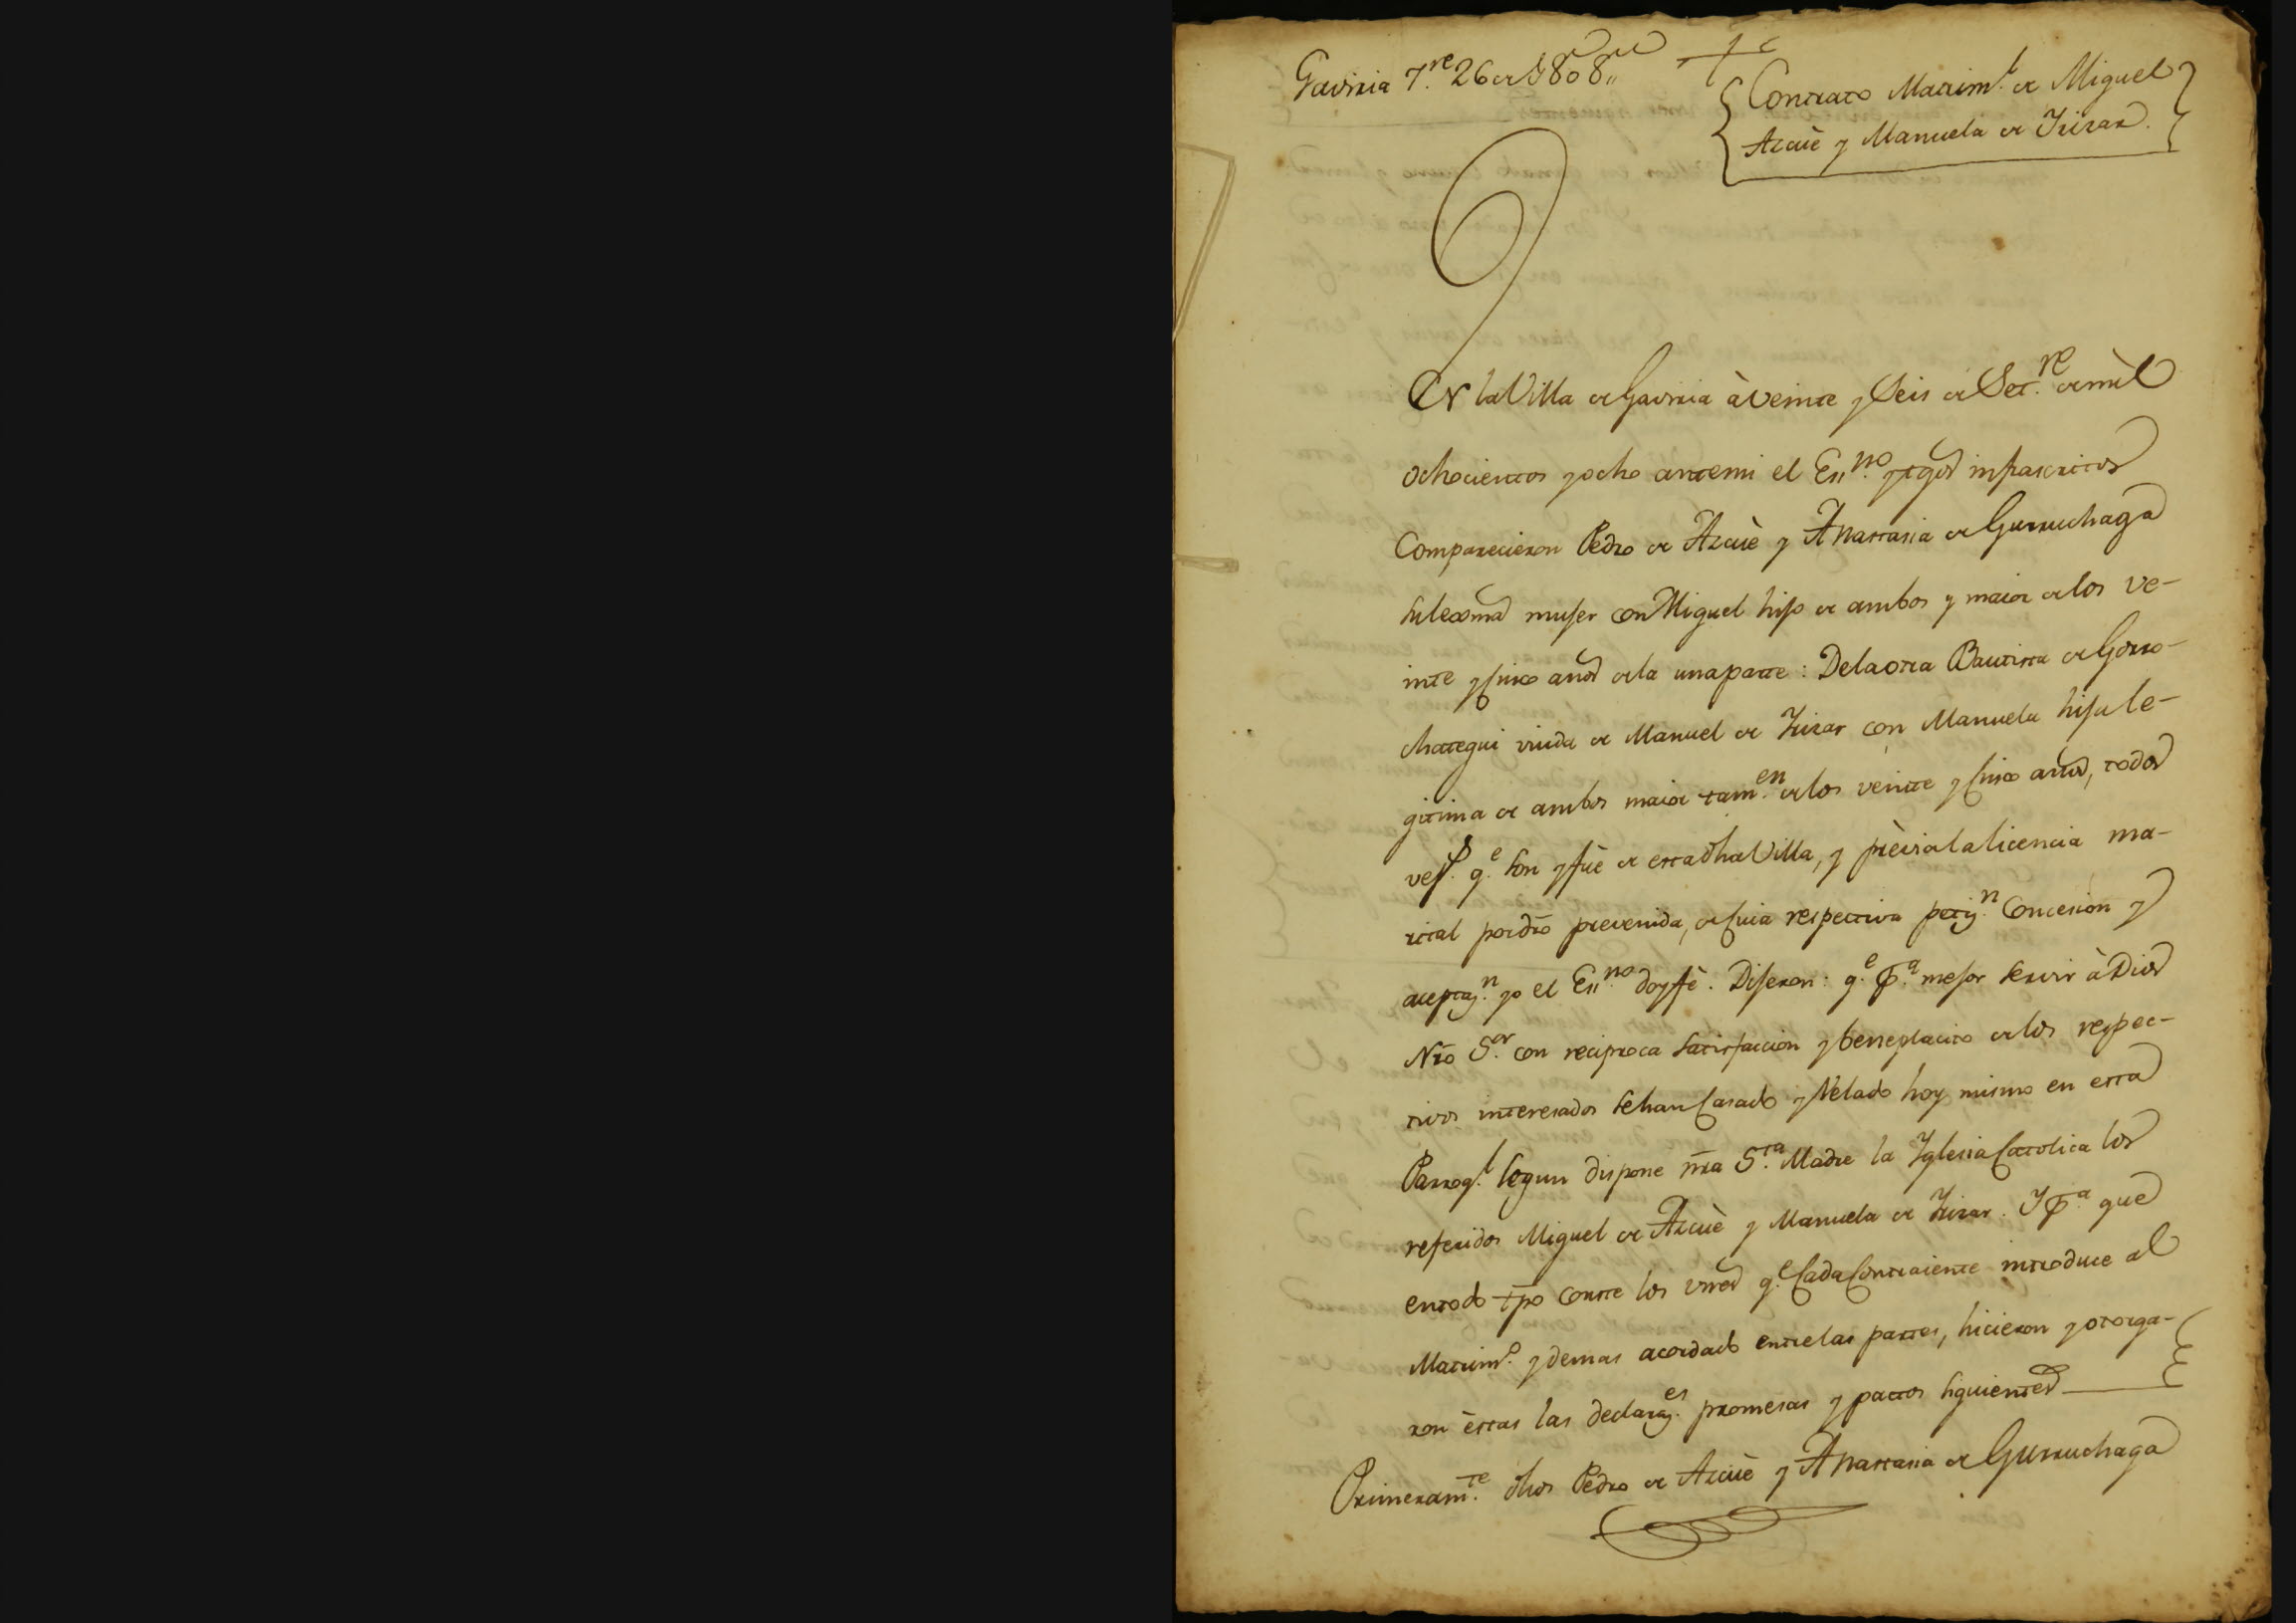 Gaviria 7.re 26 de 1808,,
Contrato Matrim.l de Miguel
Azcuè y Manuela de Irizar.
EN la Villa de Gaviria à veinte y Seis de Set.re de mìl
ochocientos y ocho ante mi el Es.no y tgos infrascritos
Comparecieron Pedro de Azcuè y Anastasia de Gurruchaga
su lexma muger con Miguel hijo de ambos y maior de los ve-
inte y Cinco años de la una parte: De la otra Bautista de Gorro-
chategui viuda de Manuel de Irizar con Manuela hija le-
gitima de ambos maior tam.en de los veinte y Cinco años, todos
vez.s q.e son y fuè de esta dha Villa, y prèvia la licencia ma-
rital por dro prevenida, de Cuia respectiva petiz.n Concesion y
aceptaz.n yo el Es.no doy fè. Dijeron: q.e p.a mejor servir à Dios
Nrõ S.or con reciproca satisfaccion y beneplacito de los respec-
tivos interesados se han Casado y Velado hoy mismo en esta
Parroq.l segun dispone nrã S.ta Madre la Yglesia Catolica los
referidos Miguel de Azcuè y Manuela de Irizar. Y p.a que
en todo tpo conste los vnes q.e Cada Contraiente introduce al
Matrim.o y demas acordado entre las partes, hicieron y otorga-
ron èstas las declaraz.es promesas y pactos siguientes
Primeram.te dhos Pedro de Azcuè y Anastasia de Gurruchaga